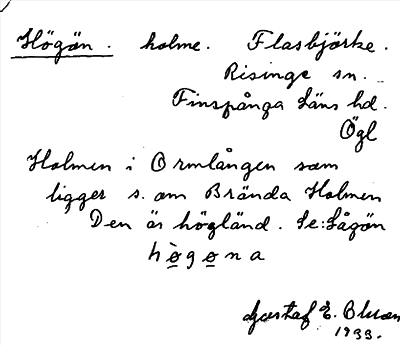 Högön. holme. Flasbjörke.
Risinge sn.
Finspånga läns hd.
Ögl
Holmen i Ormlången som
ligger s. om Brända Holmen
Den är högländ. Se: Lågön
hògona
Gustaf E.
1933.